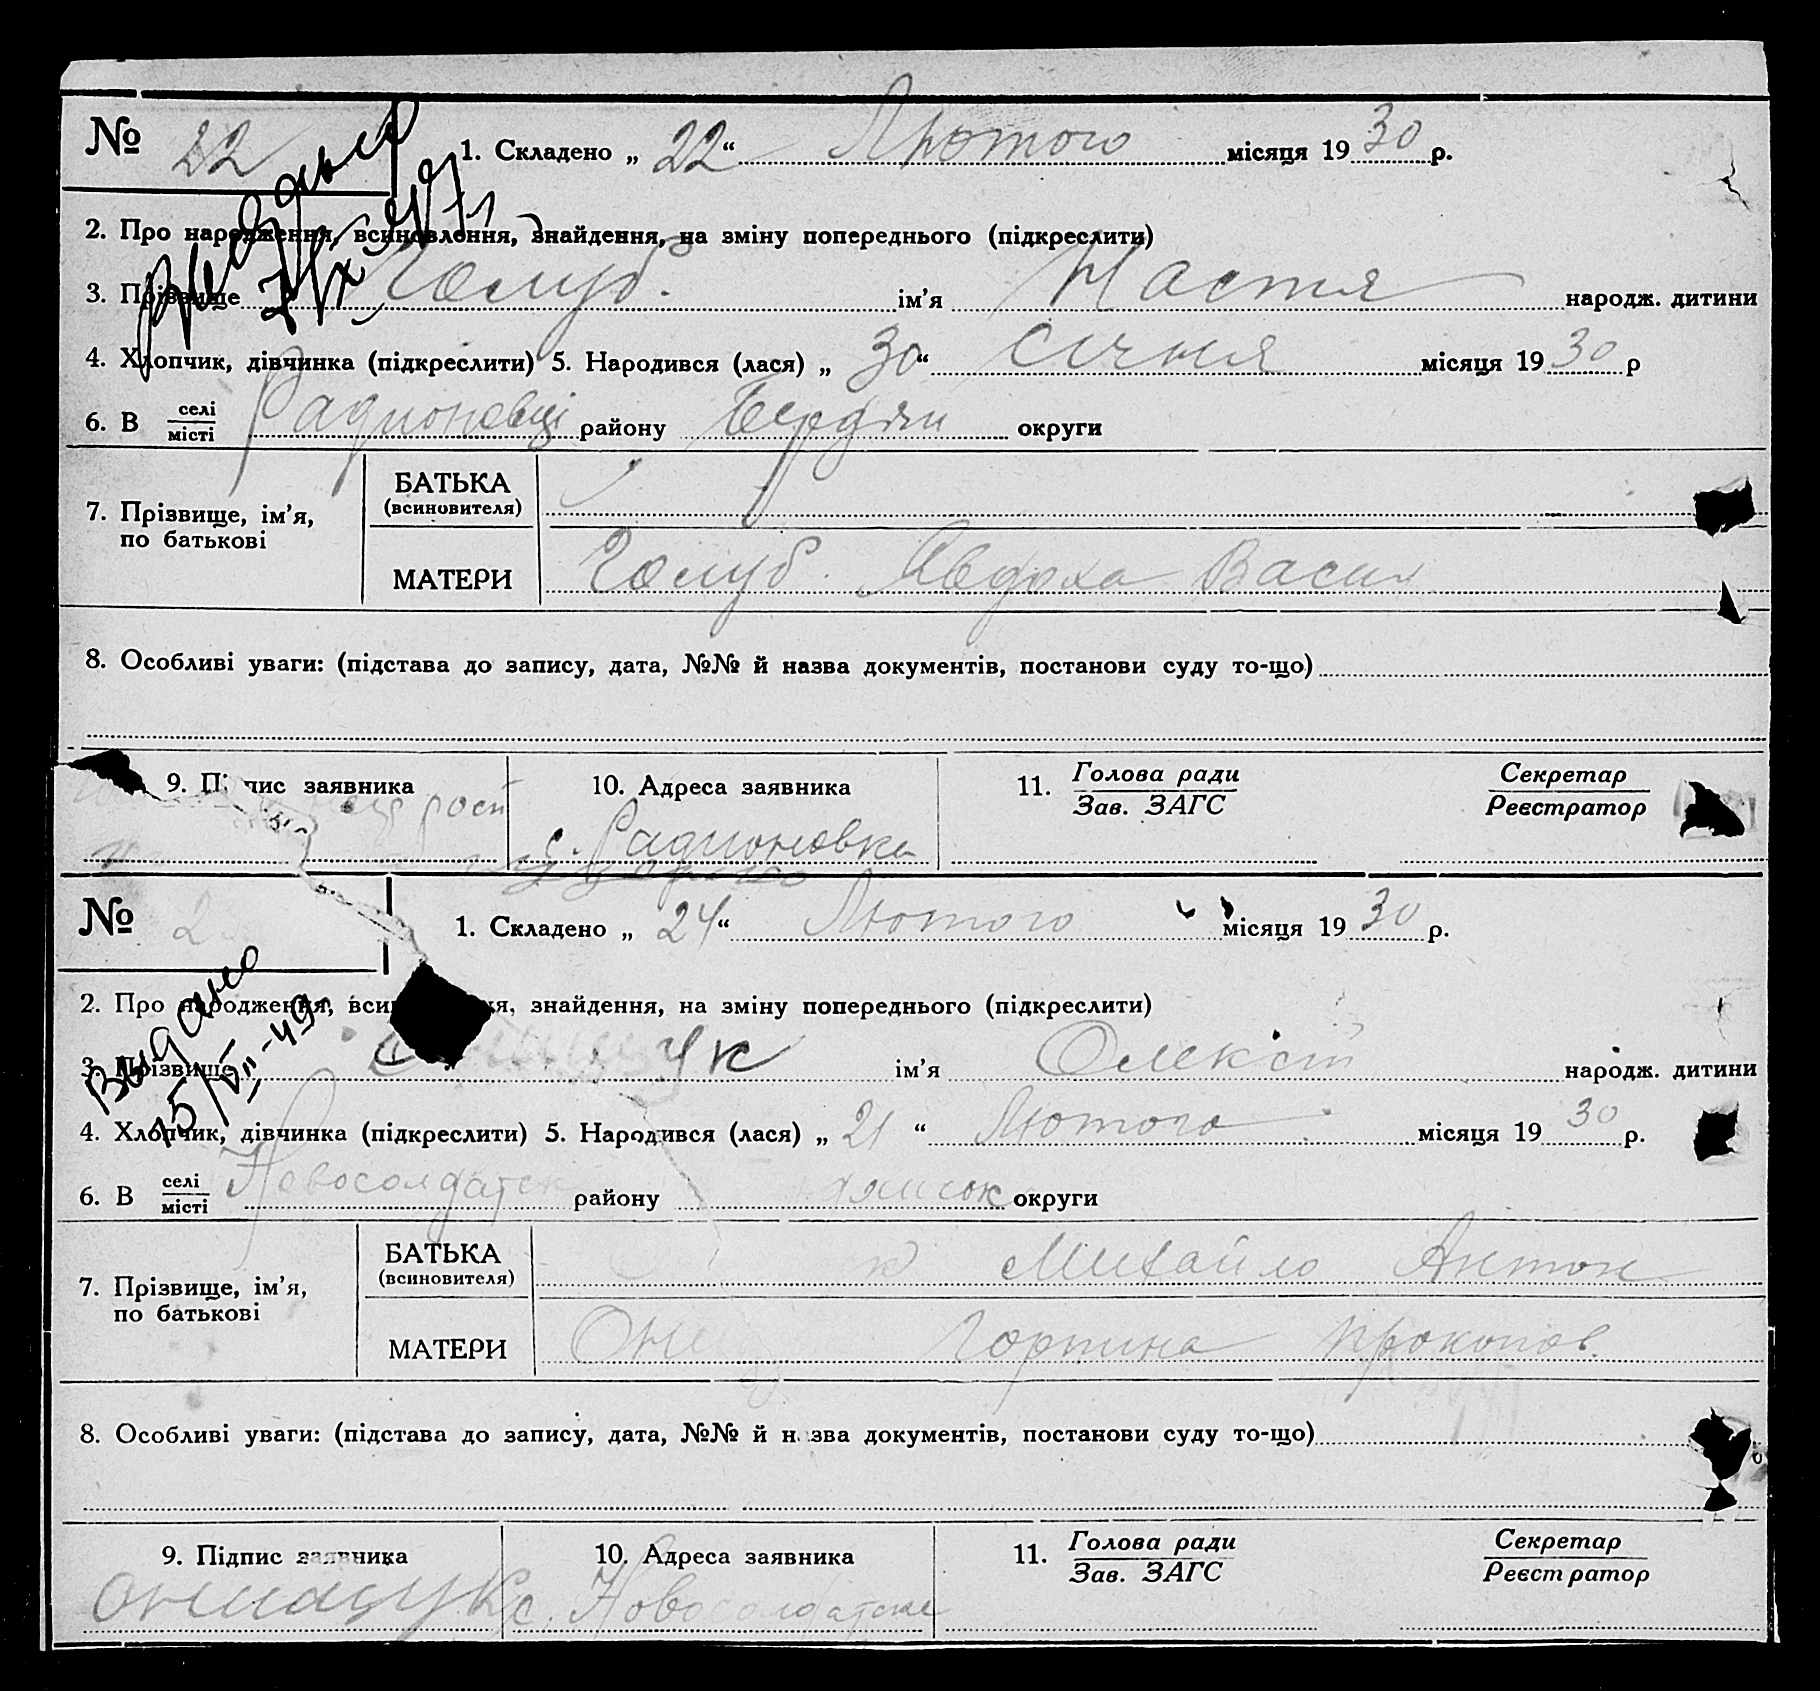 № 22 1. Складено „ 22 “ Лютого місяця 19 30 р.
2. Про народження, всиновлення, знайдення, на зміну попереднього (підкреслити)
3. Прізвище Голуб. ім’я Настя народж. дитини
4. Хлопчик, дівчинка (підкреслити) 5. Народився (лася) „ 30 “ січня місяця 19 30 р
6. В селі місті Радионовці району Бердян округи
7. Прізвище, ім’я, по батькові
БАТЬКА (всиновителя)
МАТЕРИ Голуб. Авдоха Васил
8. Особливі уваги: (підстава до запису, дата, №№ й назва документів, постанови суду то-що)
9. П пис заявника 10. Адреса заявника 11. Голова ради Секретар
Зав. ЗАГС Реєстратор
с. Радионовка
№ 2 1. Складено „ 24 “ Лютого місяця 19 30 р.
Видано
15/VII-49
2. Про народження, вси ня, знайдення, на зміну попереднього (підкреслити)
3. Прізвище ук ім’я Олексій народж. дитини
4. Хлопчик, дівчинка (підкреслити) 5. Народився (лася) „ 21 “ Лютого місяця 19 30 р.
6. В селі місті Новосолдатск району дянськ округи
7. Прізвище, ім’я, по батькові
БАТЬКА (всиновителя) к Михайло Антон
МАТЕРИ Они Горпина Прокопов.
8. Особливі уваги: (підстава до запису, дата, №№ й н зва документів, постанови суду то-що)
9. Підпис заявника 10. Адреса заявника 11. Голова ради Секретар
Зав. ЗАГС Реєстратор
Онищук с. Новосолдатске